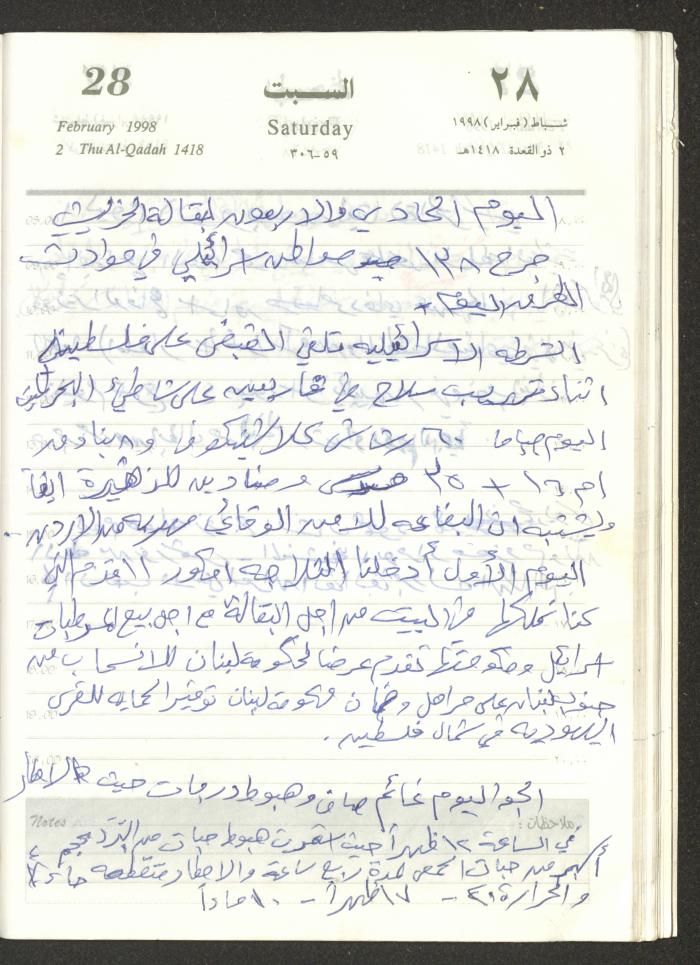 28
السبت
٢٨
February 1998
Saturday
شباط (فبراير) ١٩٩٨
2 Thu Al-Qadah 1418
٥٩-٣٠٦
٢ ذو القعدة ١٤١٨هـ
اليوم الحادي والاربعون لبقالة الحريث
جرح ١٣٨ مواطن اسرائيلي في حوادث
الطرق اليوم
الشرطه الاسرائيليه تلقي القبض على فلسطينيين
اثناء تهريب سلاح في على شاطيء البحر الميت
اليوم صباحا ٦٠ رشاش كلاشنيكوف و ٨ بنادق
ام ١٦ + ٣٥ وصناديق للذخيرة ايضا
ويشتبه ان البضاعه للامن الوقائي مهربه من الاردن
اليوم الأول أدخلنا الثلاجه امكور ١١ قدم التي
كنا نملكها في البيت من اجل البقالة من اجل بيع المرطبات
اسرائيل وحكومتها تقدم عرضا لحكومة لبنان للانسحاب من
جنوب لبنان على مراحل وضمان حكومة لبنان توفير الحمايه للقرى
اليهوديه في شمال فلسطين .
الجو اليوم غائم صافي وهبوط درجات حيث الامطار
Notes
ملاحظات :
في الساعة ١٢ ظهراً حيث استمرت هبوط حبات من البَرَد بحجم
أكبر من حبات الحمص لمدة ربع ساعة والامطار متقطعه
والحرارة ١٧ ظهراً - ١٠ مساءً